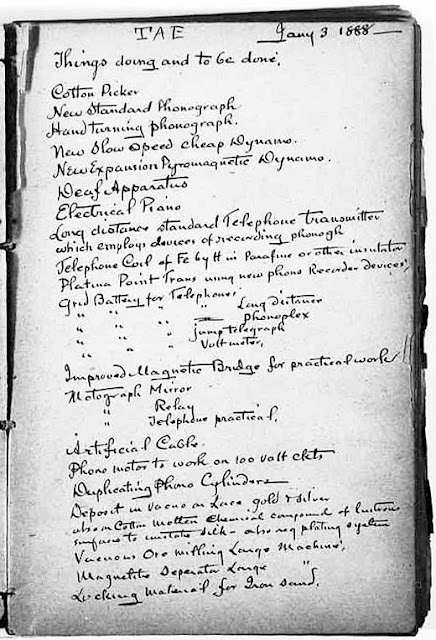 TAE Jany 3 1888—
Things doing and to be done.
Cotton Picker
New Standard Phonograph
Hand turning phonograph.
New Slow Speed Cheap Dynamo.
New Expansion Pyromagnetic Dynamo.
Deaf Apparatus
Electrical Piano
Long distance standard Telephone Transmitter
which employs devices of recording phonogh
Telephone Coil of Fe by H in Parafine or other insulator
Platina Point Trans using new phono Recorder devices,
Grid Battery for Telephones,
" " " " Long distance
" " " Phonoplex
" " " jump telegraph
" " " Volt meter,
Improved Magnetic Bridge for practical work !!
Motograph Mirror
" Relay
" Telephone practical,
Artificial Cable.
Phono motor to work on 100 volt ckts
Duplicating Phono Cylinders
Deposit in vacuo on lace gold & silver
also on Cotton molten chemical compound of lustrous
surface to imitate silk — also reg plating system
Vacuous Ore milling Large Machine,
Magnetite Seperator Large "
Locking Material for Iron sand,